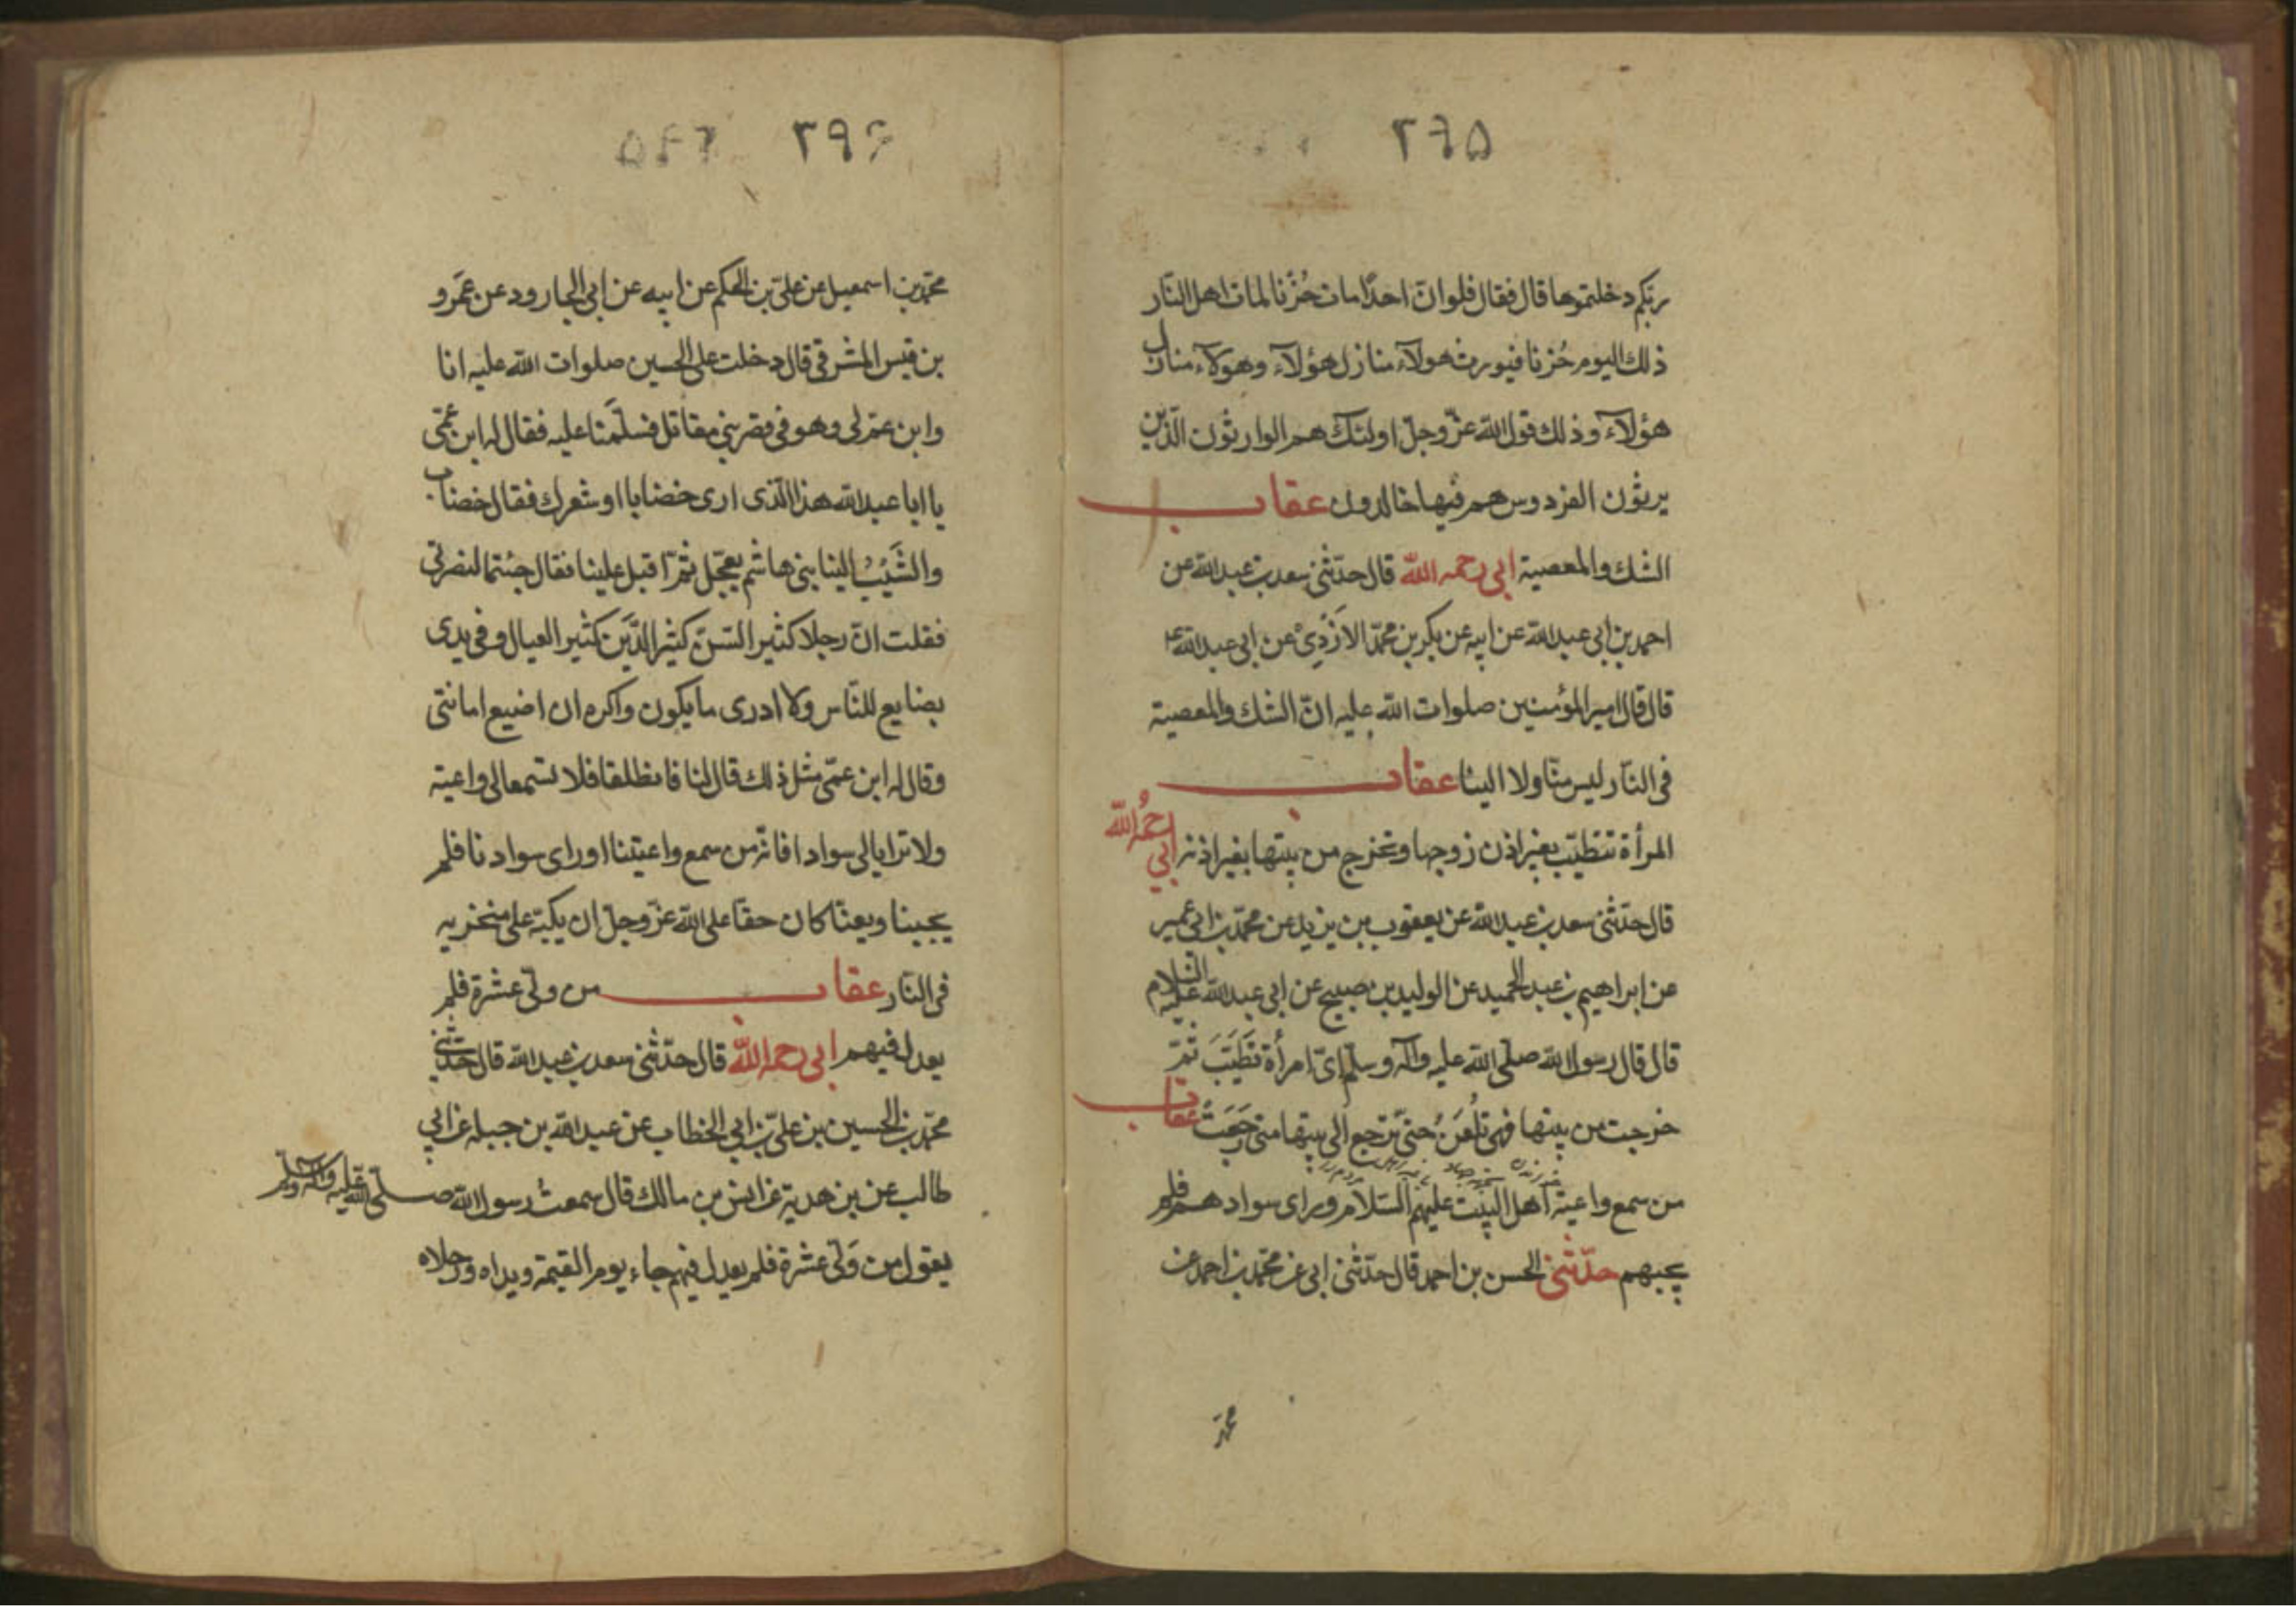 ۲۶۵
ربكم دخلتموها قال فقال فلو انّ احدًا مات حُزْنا لمات اهل النّار
ذلك اليوم حُزنا فيورث هولآء منازل هؤلآء وهولآء منازل
هؤلآء وذلك قول الله عزّ وجلّ اولئك هم الوارثون الّذين
يرثون الفردوس هم فيها خالدون عقاب
الشك والمعصية ابى رحمه الله قال حدّثنى سعد بن عبد الله عن
احمد بن ابى عبد الله عن ابيه عن بكر بن محمّد الازْدِىْ عن ابى عبد الله ع
قال قال امير المؤمنين صلوات الله عليه انّ الشك والمعصية
فى النّار ليس منّا ولا الينا عقاب
المرأة تتطيّب بغير اذن زوجها وتخرج من بيتها بغير اذنه ابي رحمُه الله
قال حدّثنى سعد بن عبد الله عن يعقوب بن يزيد عن محمّد بن ابى عمير
عن ابراهيم بن عبد الحميد عن الوليد بن صبيح عن ابى عبد الله عليه السّلام
قال قال رسول الله صلّى الله عليه وآله وسلّم اىّ امرأة تَطَيَّبَتَ ثمّ
خرجت من بيتها فهى تُلْعَنُ حتىّ ترجع الى بيتها متى رَجَعَتْ عقاب
من سمع واعية اهل البيْت عليهم السّلام وراى سوادهم فلم
يجبهم حدّثنى الحسن بن احمد قال حدّثنى ابى عن محمّد بن احمد عن
محمّد
۲۹۶
محمّد بن اسمعيل عن علىّ بن الحكم عن ابيه عن ابى الجارود عن عَمَرو
بن قيس المشرقى قال دخلت على الحسين صلوات الله عليه انا
وابن عمّ لى وهو فى قصر بنى مقاتل فسلّمَنا عليه فقال له ابن عَمّى
يا ابا عبد الله هذا الّذى ارى خضابا او شعرك فقال خضاب
والشَيْبُ الينا بنى هاشم يعجّل ثمّ اقبل علينا فقال جئتما لنصرتى
فقلت انّ رجلا كثير السّنّ كثير الدّيَن كثير العيال وفى يدى
بضايع للنّاس ولا ادرى ما يكون واكره ان اضيع امانتى
وقال له ابن عمّى مثل ذلك قال لنا فانطلقا فلا تسمعا لى واعية
ولا تريا لى سوادا فانّه من سمع واعيتنا او راى سوادنا فلم
يجبنا ويعنّا كان حقّا على الله عزّ وجلّ ان يكبّه على منخريه
فى النّار عقاب من ولّى عشرة فلم
يعدل فيهم ابى رحمه الله قال حدّثنى سعد بن عبد الله قال حدّثنى
محمّد بن الحسين بن علىّ بن ابى الخطاب عن عبد الله بن جبله عن ابي
طالب عن بن هدية عن انس بن مالك قال سمعتُ رسول الله صلّى الله عليه وآله وسلّم
يقول من وَلّى عشرة فلم يعدل فيهم جاء يوم القيمة ويداه ورجلاه